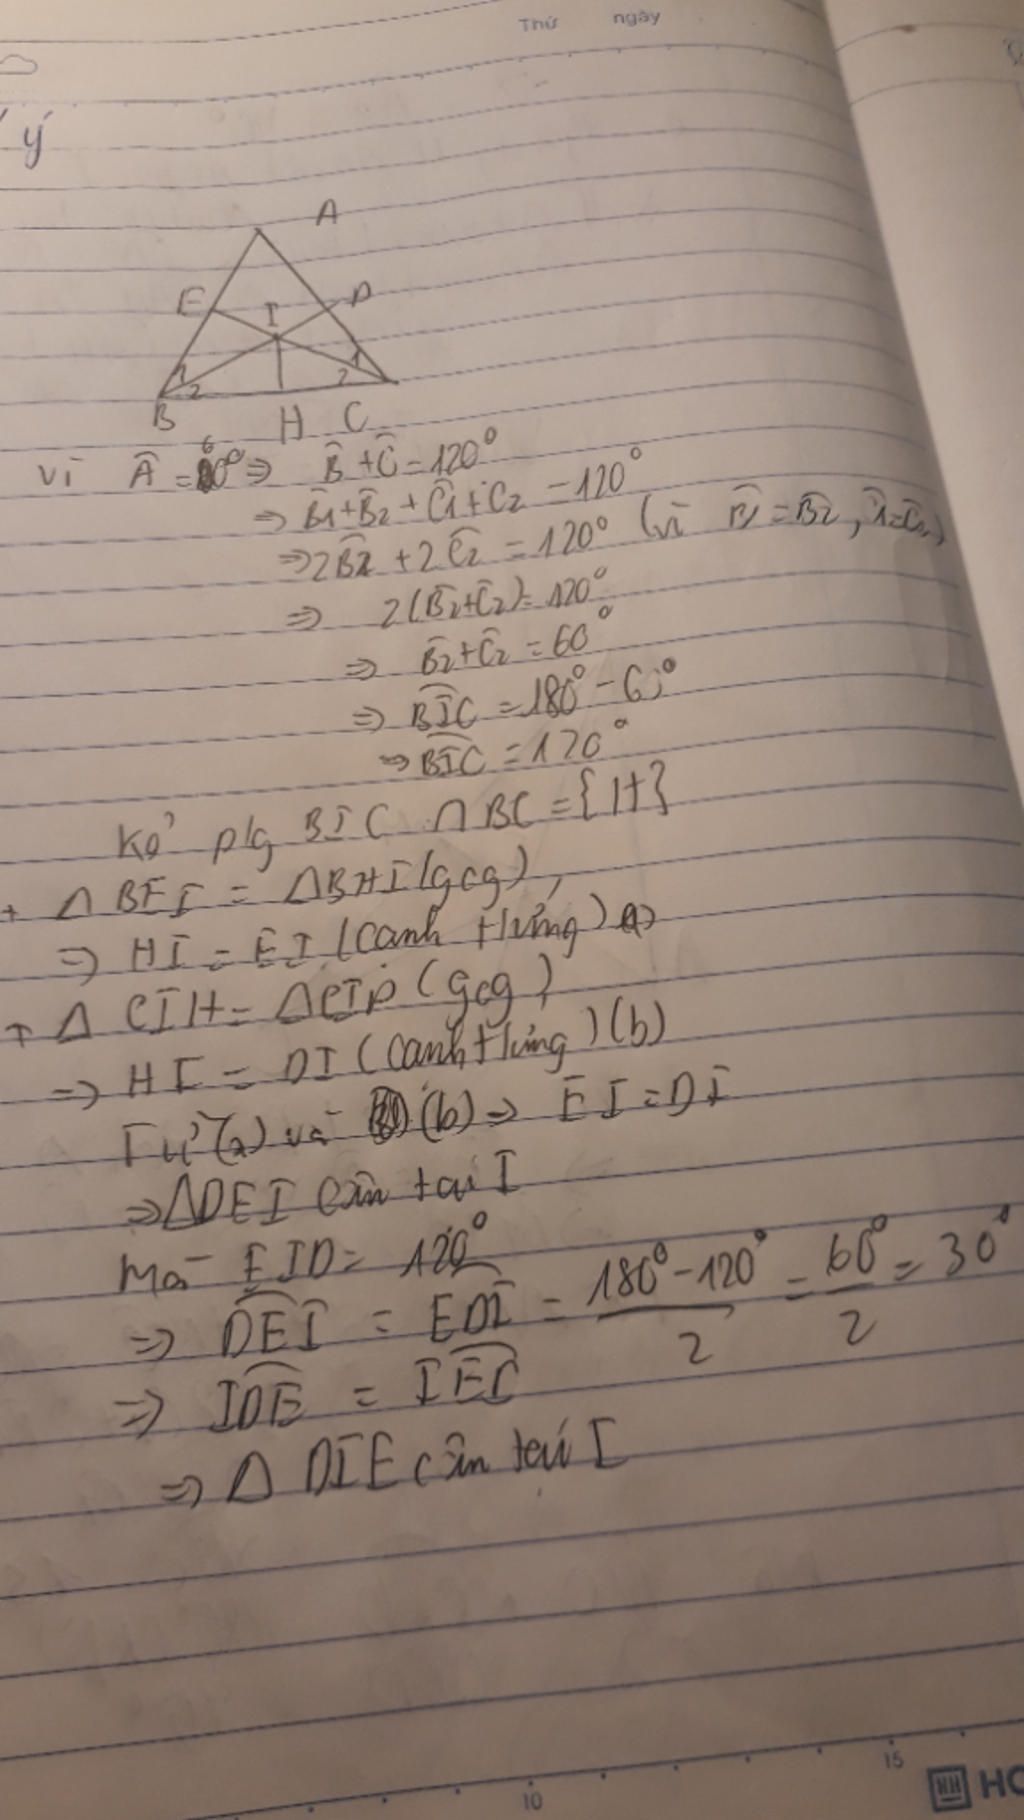 Thứ ngày
ý
A
E I D
1 2 2 1
B H C
vì Â = 60° ⇒ B̂ + Ĉ = 120°
⇒ B̂1 + B̂2 + Ĉ1 + C2 = 120°
⇒ 2B̂2 + 2Ĉ2 = 120° (vì B̂1 = B̂2, Ĉ1 = Ĉ2)
⇒ 2(B̂2 + Ĉ2) = 120°
⇒ B̂2 + Ĉ2 = 60°
⇒ BIC = 180° - 60°
⇒ BIC = 120°
Kẻ p/g BIC ∩ BC = {H}
+ Δ BEI = ΔBHI (gcg),
⇒ HI = EI (cạnh t/ứng) (a)
+ Δ CIH = ΔCID (gcg)
⇒ HI = DI (cạnh t/ứng) (b)
Từ (a) và (b) ⇒ EI = DI
⇒ ΔDEI cân tại I
Mà EID = 120°
⇒ DEI = EDI = (180° - 120°)/2 = 60°/2 = 30°
⇒ IDE = IEC
⇒ Δ DIE cân tại I
10 15
HH HO